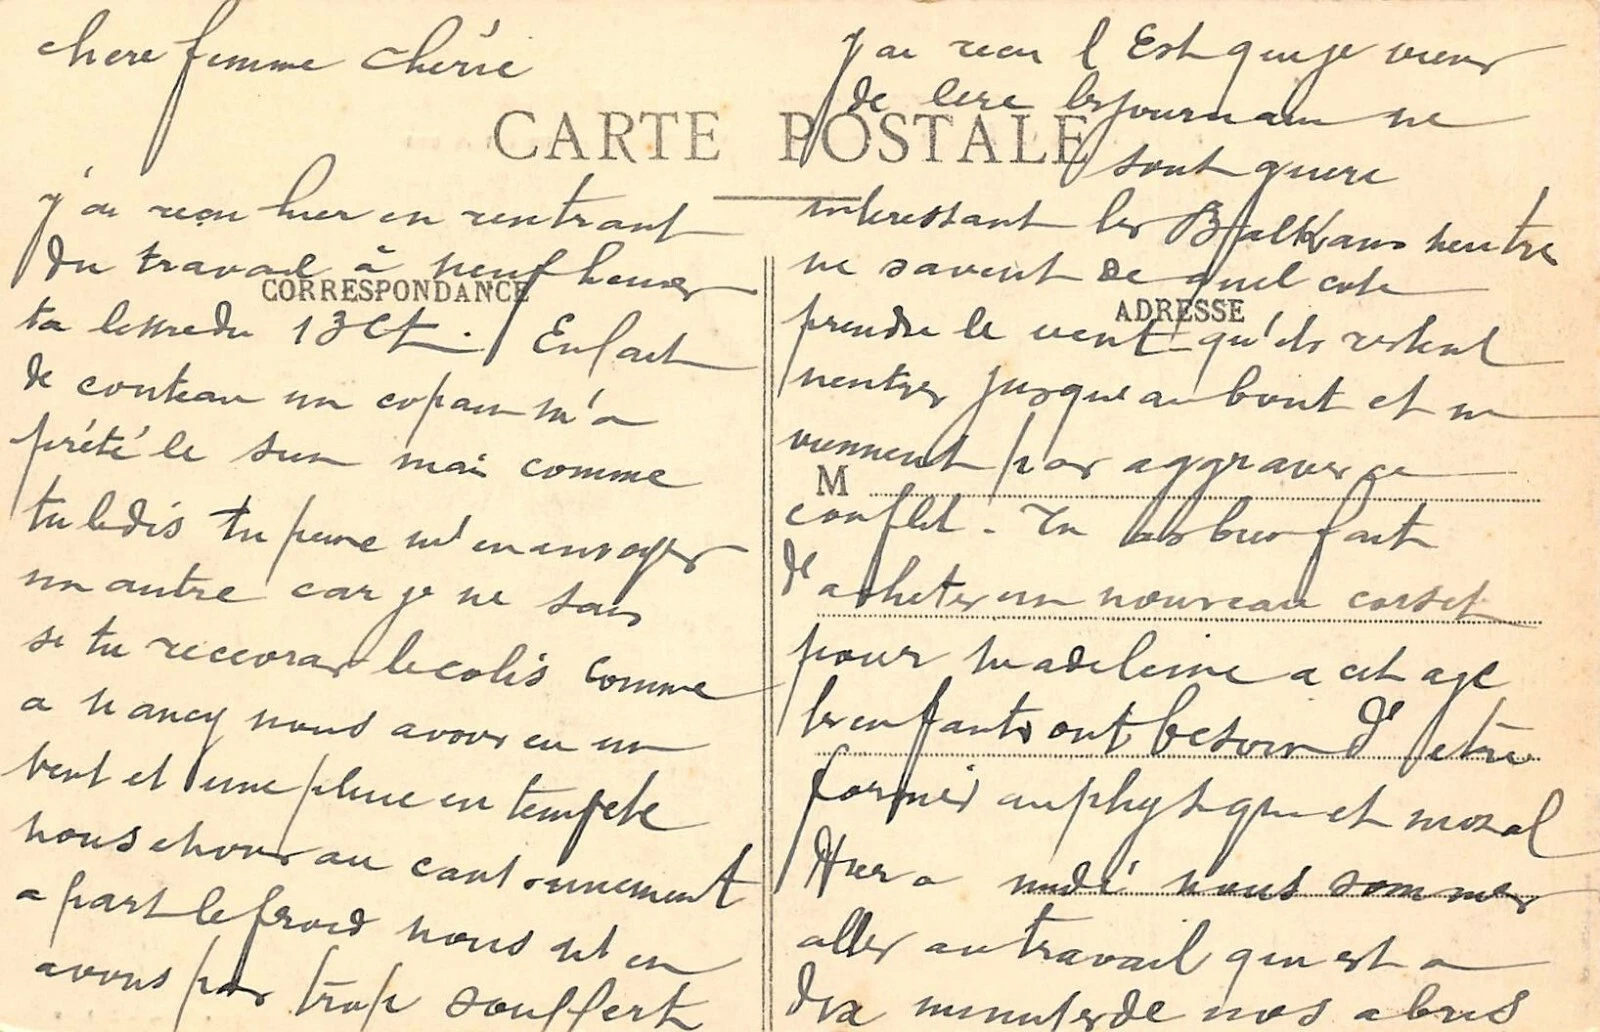 chere femme chérie
CARTE POSTALE
j'ai recu hier en rentrant
du travail à neuf heures
CORRESPONDANCE
ta lettre du 13 Ct. Enfait
de couteau un copain m'a
prété le sien mais comme
tu le dis tu peux m'en envoyer
un autre car je ne sais
si tu recevras le colis comme
a nancy nous avons eu un
vent et une pluie en tempete
nous etions au cantonnement
a part le froid nous n'en
avons pas trop souffert
j'ai recu l'Est que je viens
de lire les journaux ne
sont guere
interessant les Balkans neutre
ne savent de quel cote
ADRESSE
prendre le vent qu'ils restent
neutres jusque au bout et ne
viennent pas aggraver ce
M
conflit. Tu as bien fait
d'acheter un nouveau corset
pour madeleine a cet age
les enfants ont besoin d'etre
formés au physique et moral
Hier a midi nous sommes
aller au travail qui est a
dix minutes de nos abris